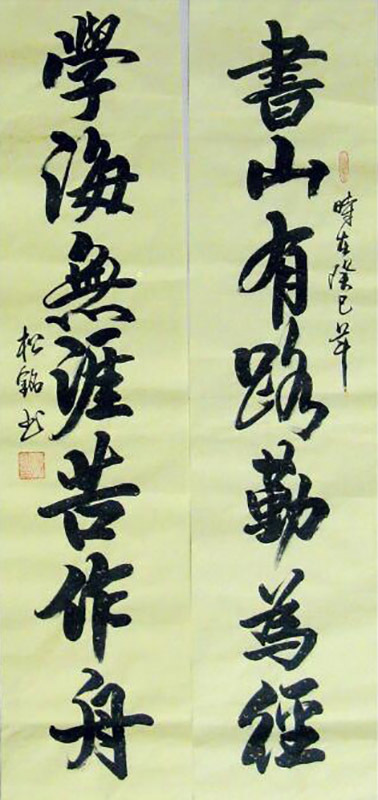 書山有路勤為徑
時在癸巳年
學海無涯苦作舟
松銘书